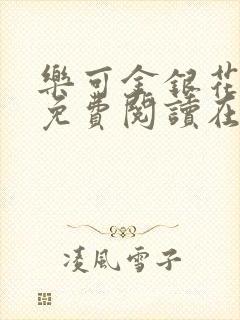 樂可金銀花
免費閱讀在
凌風雪子